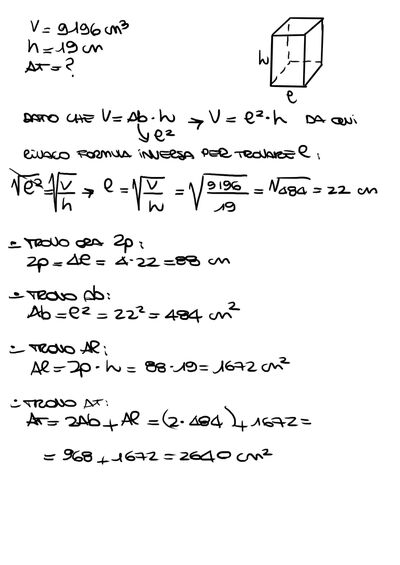 V = 9196 cm³
h = 19 cm
AT = ?
h
l
DATO CHE V = Ab · h → V = l² · h DA QUI
l²
RICAVO FORMULA INVERSA PER TROVARE l:
√l² = √V/h → l = √V/h = √9196/19 = √484 = 22 cm
- TROVO ORA 2p:
2p = 4l = 4 · 22 = 88 cm
- TROVO Ab:
Ab = l² = 22² = 484 cm²
- TROVO Al:
Al = 2p · h = 88 · 19 = 1672 cm²
- TROVO AT:
AT = 2Ab + Al = (2 · 484) + 1672 =
= 968 + 1672 = 2640 cm²